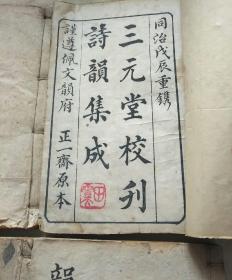 同治戊辰重鐫
三元堂校刊
詩韻集成
謹遵佩文韻府
正一齋原本